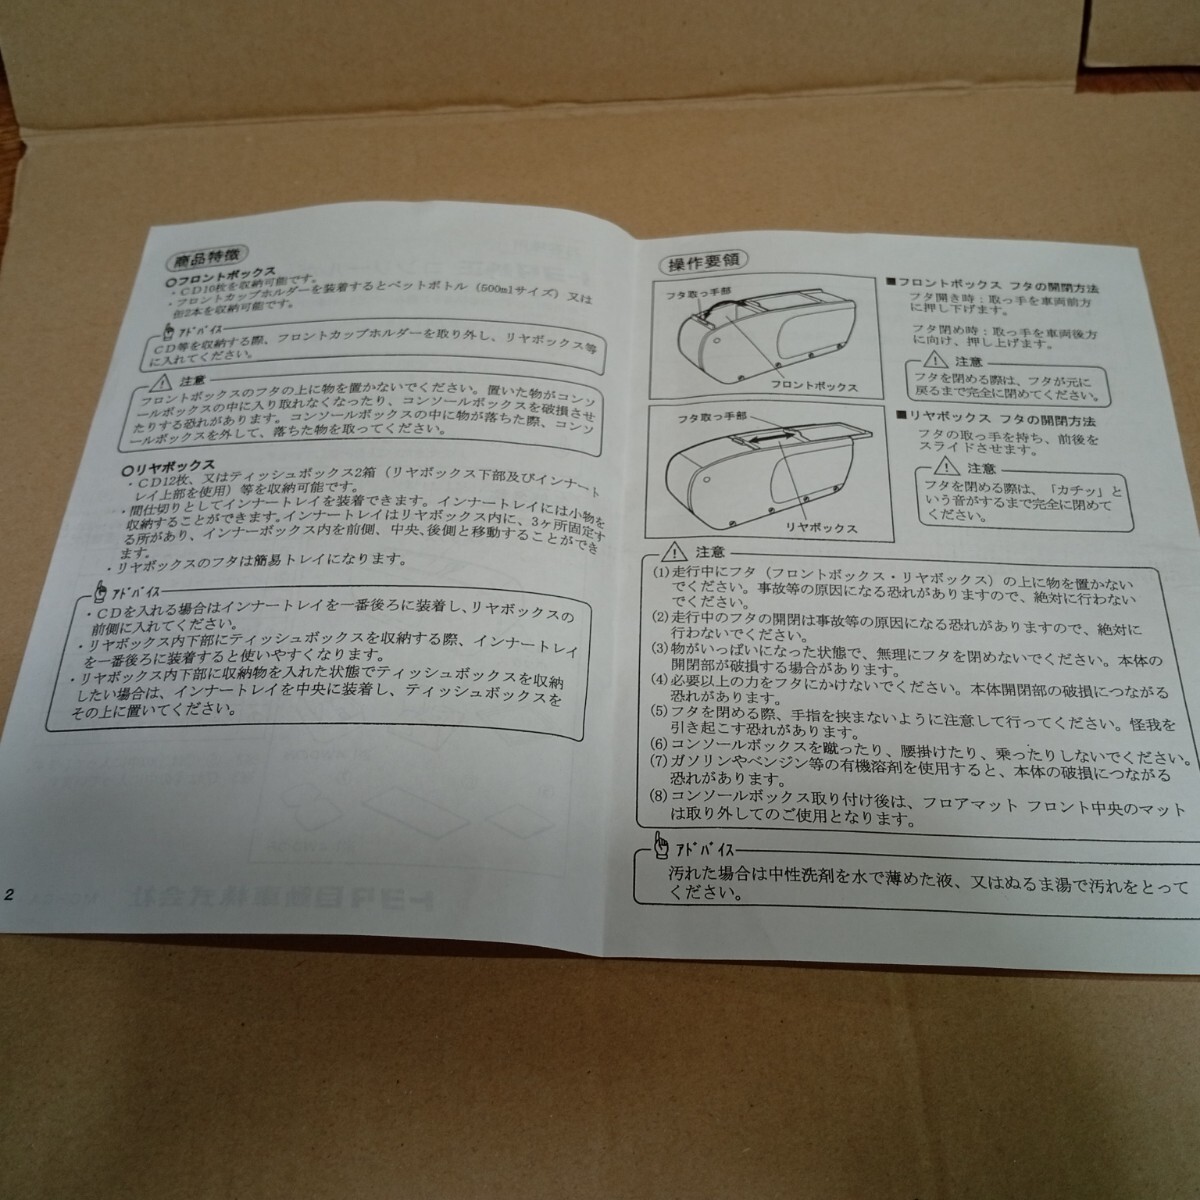 商品特徴
○フロントボックス
・CD10枚を収納可能です。
・フロントカップホルダーを装着するとペットボトル（500mlサイズ）又は
缶2本を収納可能です。
ｱﾄﾞﾊﾞｲｽ
CD等を収納する際、フロントカップホルダーを取り外し、リヤボックス等
に入れてください。
注意
フロントボックスのフタの上に物を置かないでください。置いた物がコンソ
ールボックスの中に入り取れなくなったり、コンソールボックスを破損させ
たりする恐れがあります。コンソールボックスの中に物が落ちた際、コンソ
ールボックスを外して、落ちた物を取ってください。
○リヤボックス
・CD12枚、又はティッシュボックス2箱（リヤボックス下部及びインナート
レイ上部を使用）等を収納可能です。
・間仕切りとしてインナートレイを装着できます。インナートレイには小物を
収納することができます。インナートレイはリヤボックス内に、3ヶ所固定す
る所があり、インナーボックス内を前側、中央、後側と移動することができ
ます。
・リヤボックスのフタは簡易トレイになります。
ｱﾄﾞﾊﾞｲｽ
・CDを入れる場合はインナートレイを一番後ろに装着し、リヤボックスの
前側に入れてください。
・リヤボックス内下部にティッシュボックスを収納する際、インナートレイ
を一番後ろに装着すると使いやすくなります。
・リヤボックス内下部に収納物を入れた状態でティッシュボックスを収納
したい場合は、インナートレイを中央に装着し、ティッシュボックスを
その上に置いてください。
2
操作要領
フタ取っ手部
フロントボックス
■フロントボックス フタの開閉方法
フタ開き時：取っ手を車両前方
に押し下げます。
フタ閉め時：取っ手を車両後方
に向け、押し上げます。
注意
フタを閉める際は、フタが元に
戻るまで完全に閉めてください。
フタ取っ手部
リヤボックス
■リヤボックス フタの開閉方法
フタの取っ手を持ち、前後を
スライドさせます。
注意
フタを閉める際は、「カチッ」と
いう音がするまで完全に閉めて
ください。
注意
(1)走行中にフタ（フロントボックス・リヤボックス）の上に物を置かない
でください。事故等の原因になる恐れがありますので、絶対に行わない
でください。
(2)走行中のフタの開閉は事故等の原因になる恐れがありますので、絶対に
行わないでください。
(3)物がいっぱいになった状態で、無理にフタを閉めないでください。本体の
開閉部が破損する場合があります。
(4)必要以上の力をフタにかけないでください。本体開閉部の破損につながる
恐れがあります。
(5)フタを閉める際、手指を挟まないように注意して行ってください。怪我を
引き起こす恐れがあります。
(6)コンソールボックスを蹴ったり、腰掛けたり、乗ったりしないでください。
(7)ガソリンやベンジン等の有機溶剤を使用すると、本体の破損につながる
恐れがあります。
(8)コンソールボックス取り付け後は、フロアマット フロント中央のマット
は取り外してのご使用となります。
ｱﾄﾞﾊﾞｲｽ
汚れた場合は中性洗剤を水で薄めた液、又はぬるま湯で汚れをとって
ください。
トヨタ自動車株式会社